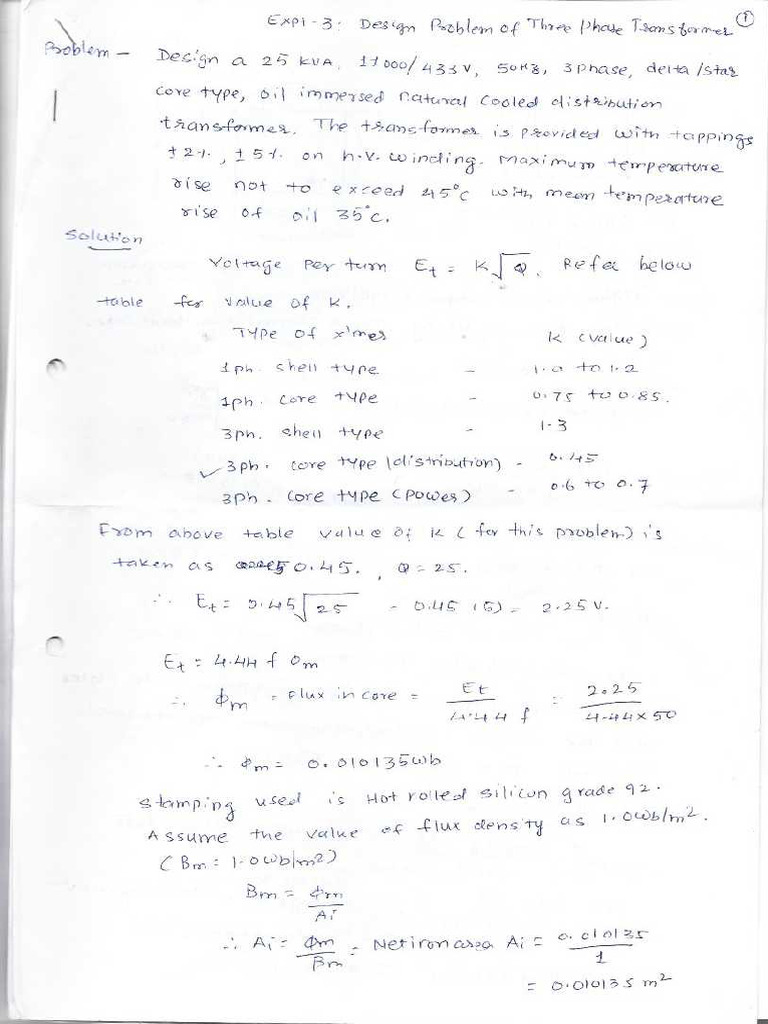 1
Expt-3: Design Problem of Three Phase Transformer
Problem - Design a 25 KVA, 11000/433V, 50Hz, 3phase, delta/star
core type, oil immersed natural cooled distribution
transformer. The transformer is provided with tappings
±2%, ±5% on h.v. winding. Maximum temperature
rise not to exceed 45°C with mean temperature
rise of oil 35°C.
Solution
Voltage per turn Et = K√Q. Refer below
table for value of K.
Type of x'mer - K (value)
1ph. shell type - 1.0 to 1.2
1ph. core type - 0.75 to 0.85.
3ph. shell type - 1.3
✓ 3ph. core type (distribution) - 0.45
3ph. core type (power) - 0.6 to 0.7
From above table value of K (for this problem) is
taken as 0.45. , Q = 25.
∴ Et = 0.45√25 = 0.45 (5) = 2.25 V.
Et = 4.44 f Φm
∴ Φm = Flux in core = Et / 4.44 f = 2.25 / 4.44×50
∴ Φm = 0.010135 wb
Stamping used is Hot rolled silicon grade 92.
Assume the value of flux density as 1.0 wb/m².
(Bm = 1.0 wb/m²)
Bm = Φm / Ai
∴ Ai = Φm / Bm = Net iron area Ai = 0.010135 / 1
= 0.010135 m²